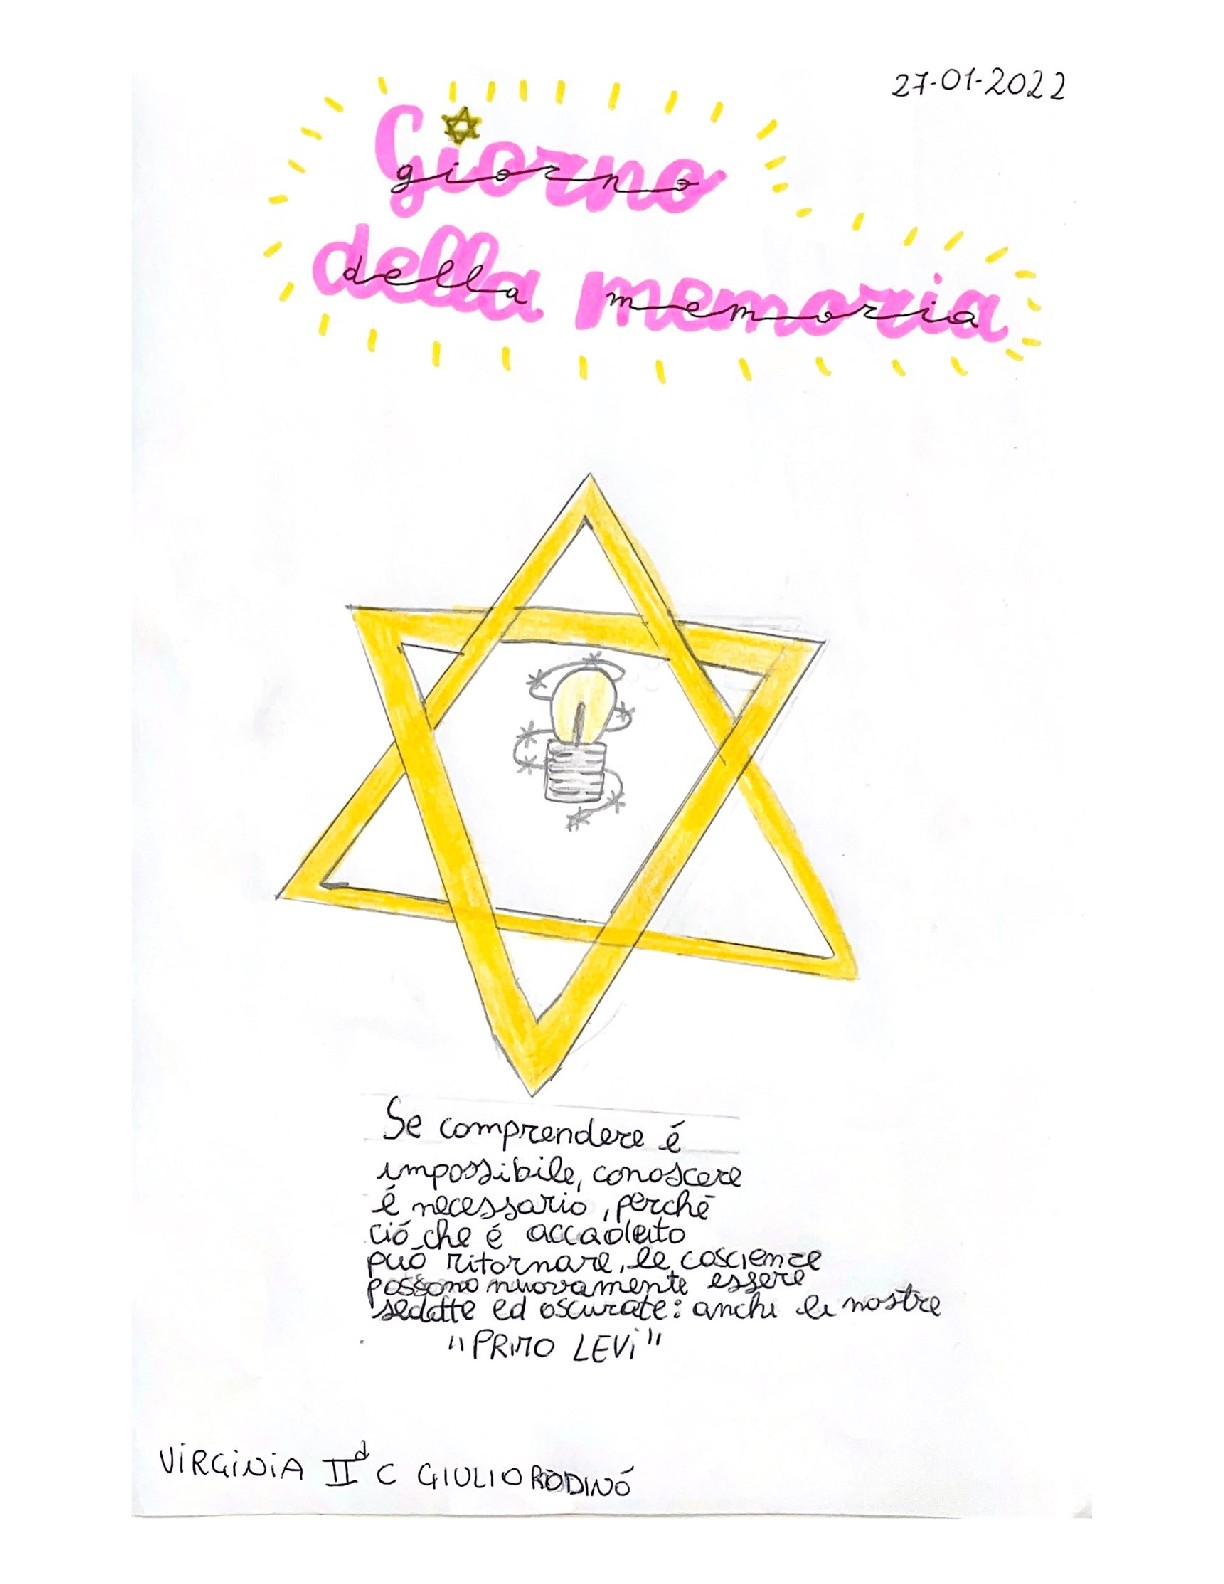 27-01-2022
Giorno
giorno
della memoria
della memoria
Se comprendere é
impossibile, conoscere
é necessario, perché
ció che é accaduto
puó ritornare, le coscienze
possono nuovamente essere
sedotte ed oscurate: anche le nostre
"PRIMO LEVI"
VIRGINIA IIª C GIULIO RODINÓ